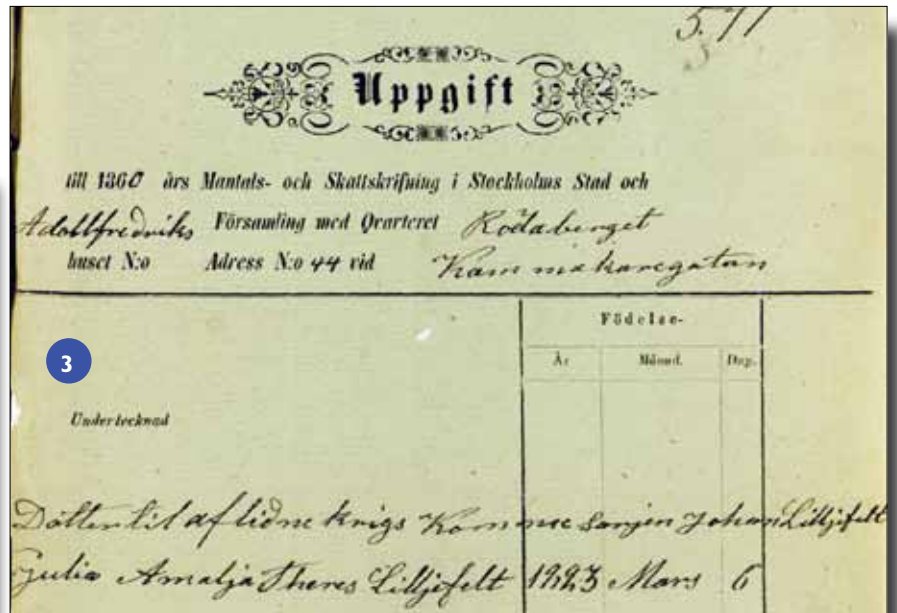 571
Uppgift
till 1860 års Mantals- och Skattskrifning i Stockholms Stad och
Adolffredriks Församling med Qvarteret Rödaberget
huset N:o Adress N:o 44 vid Kammakaregatan
Födelse-
År Månad. Dag.
3
Undertecknad
Dotter til aflidne Krigs Kommissarjen Johan Lilljefelt
Julia Amalja Theres Lilljefelt 1823 Mars 6